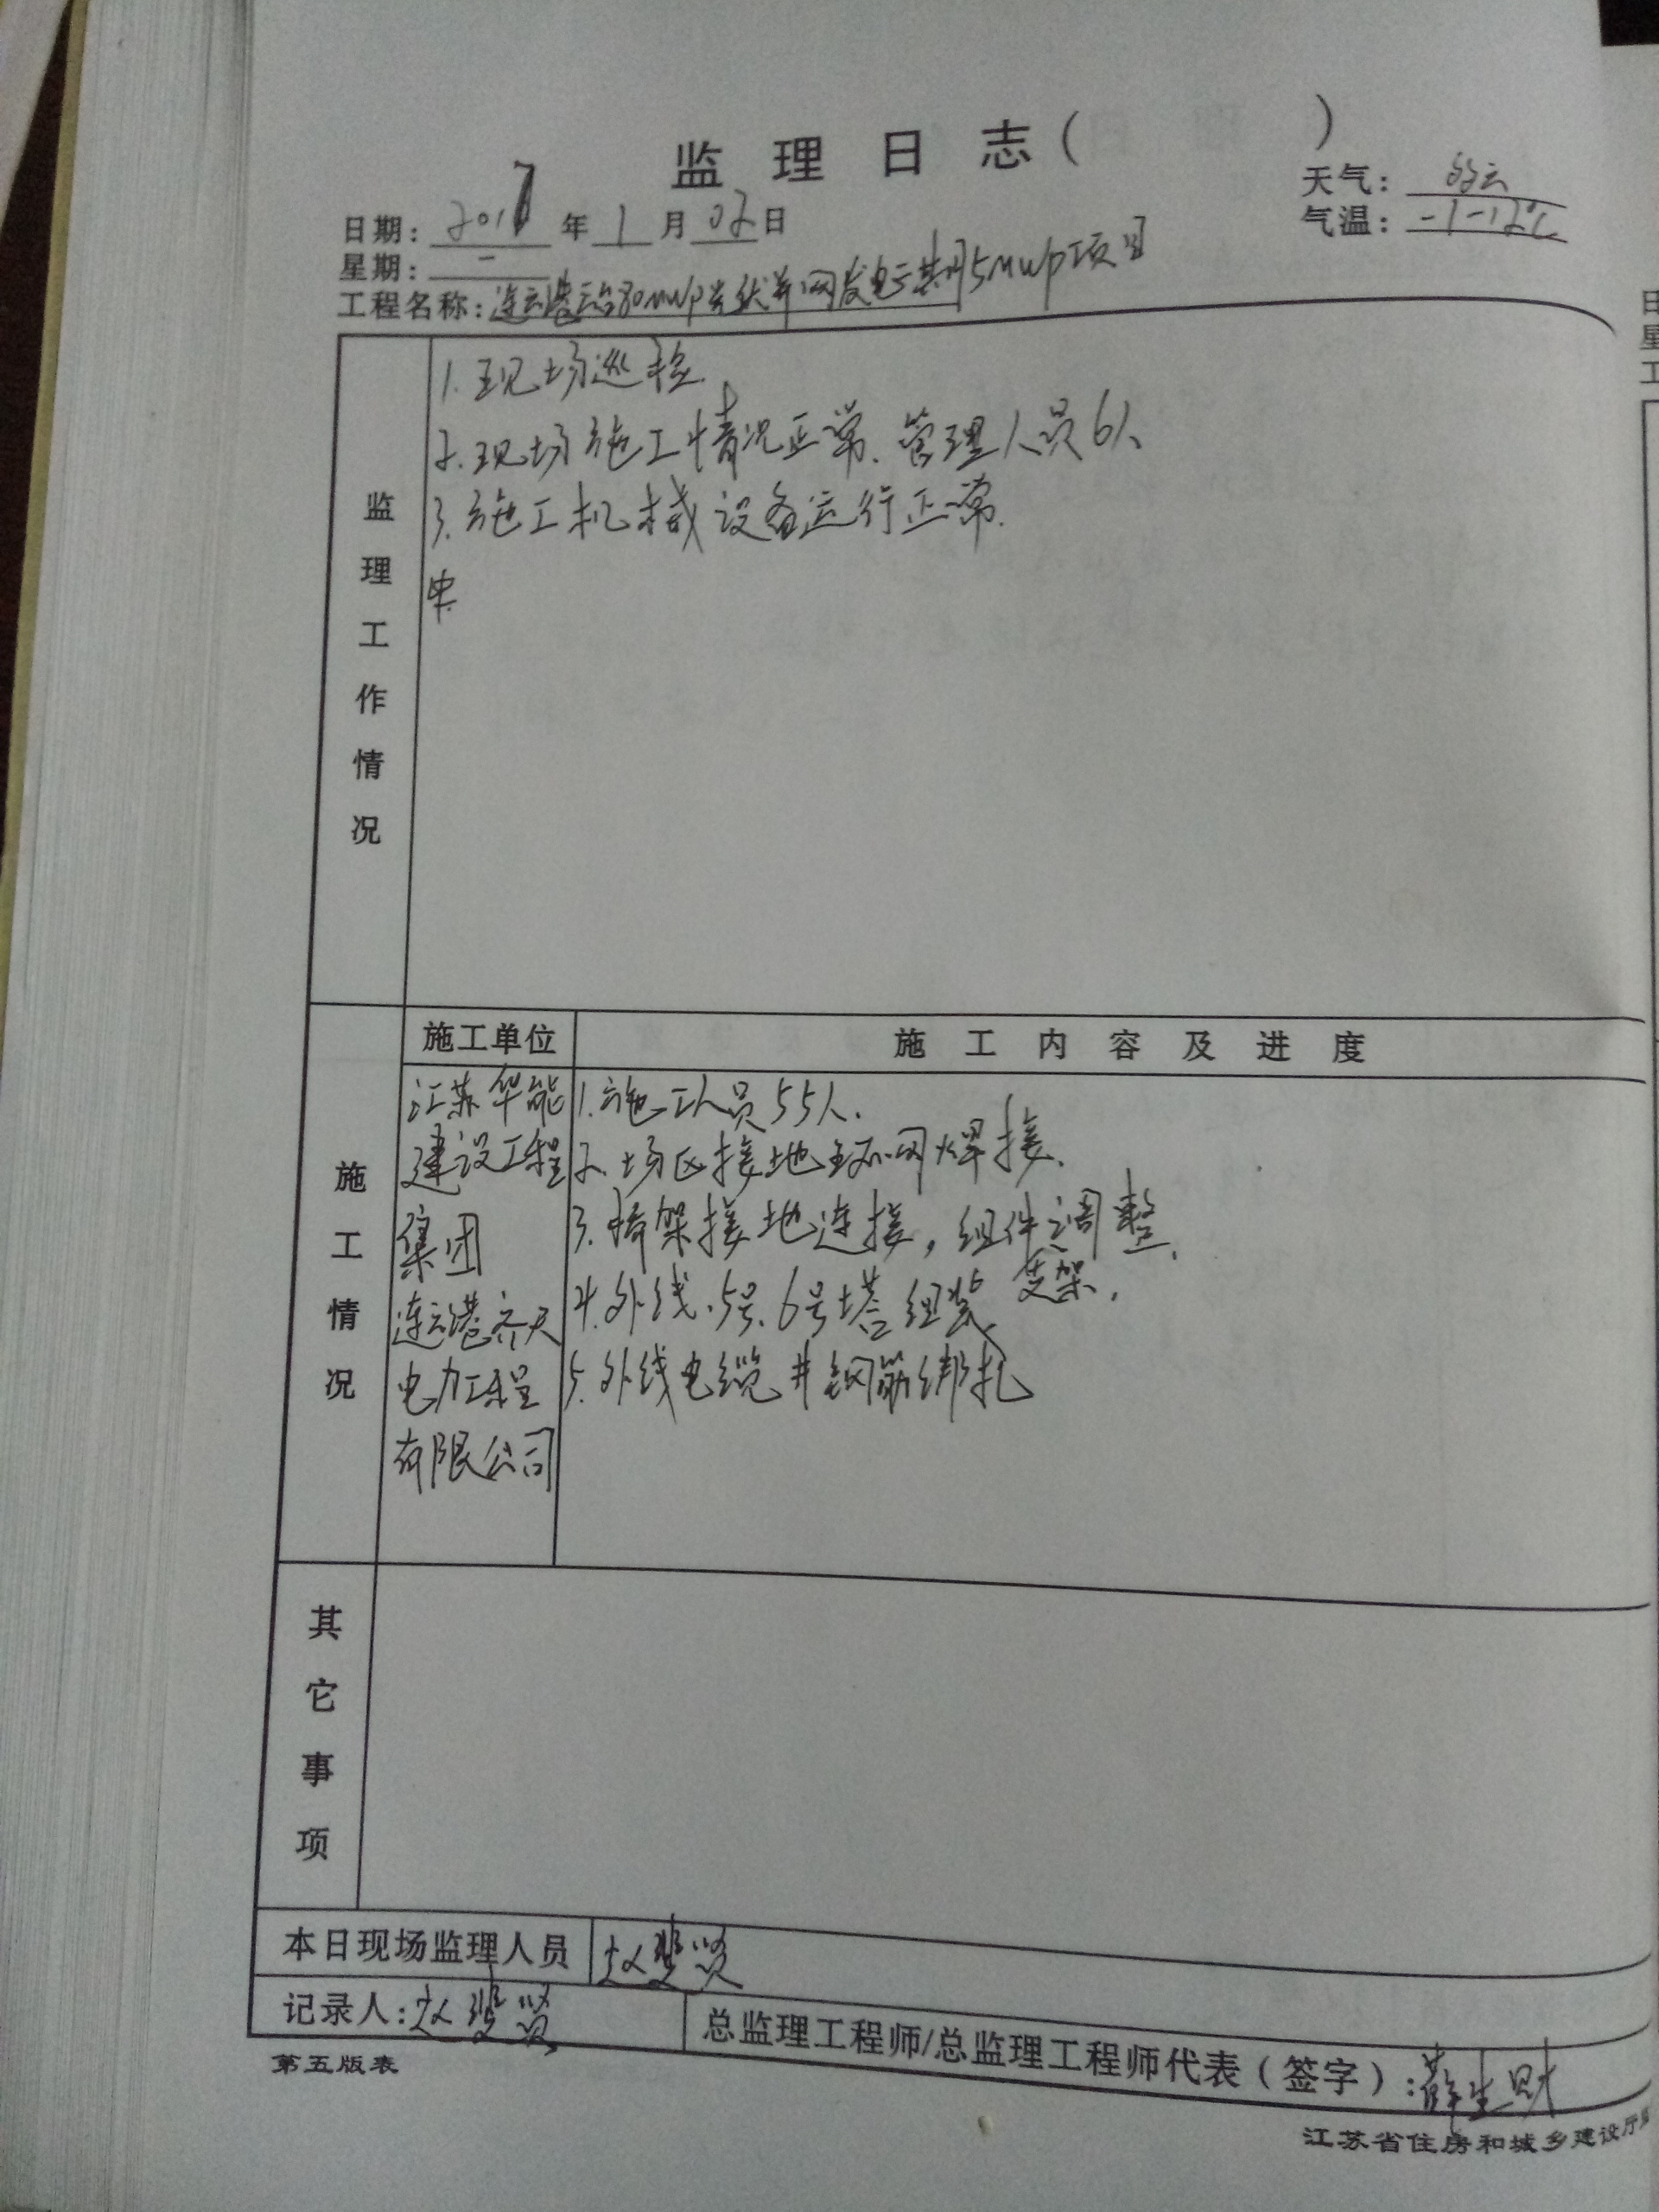 监理日志（ ）
日期：2017年1月02日
天气：多云
星期：一
气温：-1-12℃
工程名称：连云港云台80MWP光伏并网发电 5MWP项目
监理工作情况
1.现场巡检.
2.现场施工情况正常、管理人员6人
3.施工机械设备运行正常.
施工情况
施工单位
施工内容及进度
江苏华能
建设工程
集团
连云港齐天
电力工程
有限公司
1.施工人员55人.
2.场区接地环网焊接.
3.桥架接地连接，组件调整.
支架.
4.外线.5号.6号塔组装
5.外线电缆井钢筋绑扎
其它事项
本日现场监理人员 赵
记录人：赵
总监理工程师/总监理工程师代表（签字）：薛生财
第五版表
江苏省住房和城乡建设厅
日
星
工